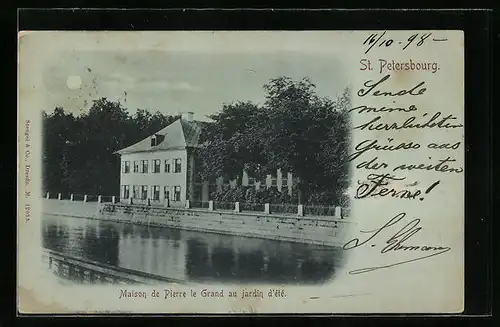 16/10.98 –
St. Petersbourg.
Sende
meine
herzlichsten
Grüsse aus
der weiten
Ferne!
Maison de Pierre le Grand au jardin d'été.
Stengel & Co., Dresde. M. 12053.